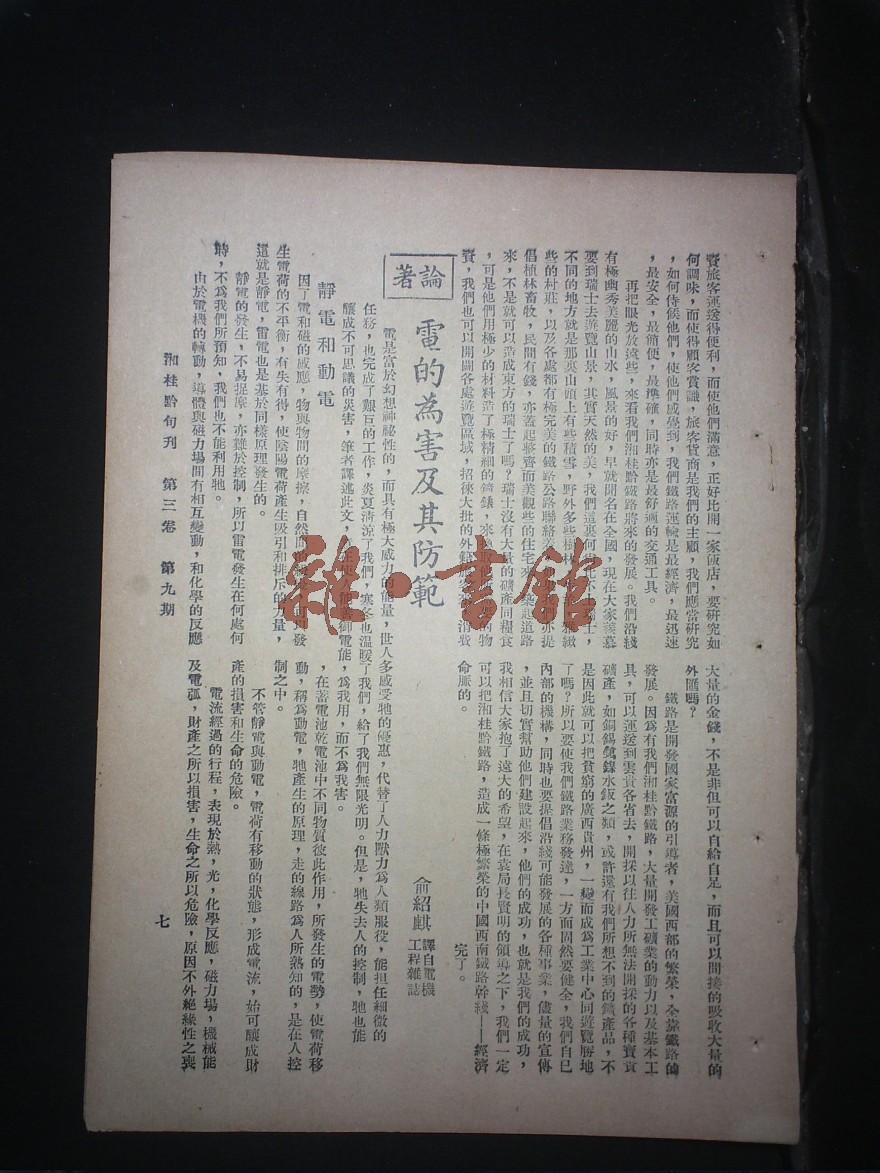 賓旅客運送得便利，而使他們滿意，正好比開一家飯店，要研究如
何調味，而使得顧客賞識，旅客貨商是我們的主顧，我們應當研究
，如何侍候他們，使他們感覺到，我們鐵路運輸是最經濟，最迅速
，最安全，最簡便，最準確，同時亦是最舒適的交通工具。
再把眼光放遠些，來看我們湘桂黔鐵路將來的發展。我們沿綫
有極幽秀美麗的山水，風景的好，早就聞名在全國，現在大家羨慕
要到瑞士去遊覽山景，其實天然的美，我們這裏何瑞士，
不同的地方就是那裏山頭上有些積雪，野外多些樹林，雅緻
些的村莊，以及各處都有極完美的鐵路公路聯絡亦提
倡植林畜牧，民間有錢，亦蓋起整齊而美觀些的住宅來，築起道路
來，不是就可以造成東方的瑞士了嗎？瑞士沒有大量的礦產同糧食
，可是他們用極少的材料造了極精細的鐘錶，來的物
資，我們也可以開闢各處遊覽區域，招徠大批的外籍消費
大量的金錢，不是非但可以自給自足，而且可以間接的吸收大量的
外匯嗎？
鐵路是開發國家富源的引導者，美國西部的繁榮，全靠鐵路的
發展。因為有我們湘桂黔鐵路，大量開發工礦業的動力以及基本工
具，可以運送到雲貴各省去，開採以往人力所無法開採的各種寶貴
礦產，如銅錫錳鎳水鈹之類，或許還有我們所想不到的鐵產品，不
是因此就可以把貧窮的廣西貴州，一變而成為工業中心同遊覽勝地
了嗎？所以要使我們鐵路業務發達，一方面固然要健全，我們自己
內部的機構，同時也要提倡沿綫可能發展的各種事業，儘量的宣傳
，並且切實幫助他們建設起來，他們的成功，也就是我們的成功，
我相信大家抱了遠大的希望，在袁局長賢明的領導之下，我們一定
可以把湘桂黔鐵路，造成一條極繁榮的中國西南鐵路幹綫——經濟
命脈的。
完了。
論著
電的為害及其防範
俞紹麒
譯自電機
工程雜誌
電是富於幻想神祕性的，而具有極大威力的能量，世人多感受牠的優惠，代替了人力獸力為人類服役，能担任細微的
任務，也完成了艱巨的工作，炎夏清涼了我們，寒冬也溫暖了我們，給了我們無限光明。但是，牠失去人的控制，牠也能
釀成不可思議的災害，筆者譯述此文，御電能，為我用，而不為我害。
靜電和動電
因了電和磁的感應，物與物間的摩擦，自然發
生電荷的不平衡，有失有得，使陰陽電荷產生吸引和排斥的力量，
這就是靜電，雷電也是基於同樣原理發生的。
靜電的發生，不易捉摩，亦難於控制，所以雷電發生在何處何
時，不為我們所預知，我們也不能利用牠。
由於電機的轉動，導體與磁力場間有相互變動，和化學的反應
，在蓄電池乾電池中不同物質彼此作用，所發生的電勢，使電荷移
動，稱為動電，牠產生的原理，走的線路為人所熟知的，是在人控
制之中。
不管靜電與動電，電荷有移動的狀態，形成電流，始可釀成財
產的損害和生命的危險。
電流經過的行程，表現於熱，光，化學反應，磁力場，機械能
及電弧，財產之所以損害，生命之所以危險，原因不外絕緣性之喪
湘桂黔旬刊 第三卷 第九期
七
雜·書館